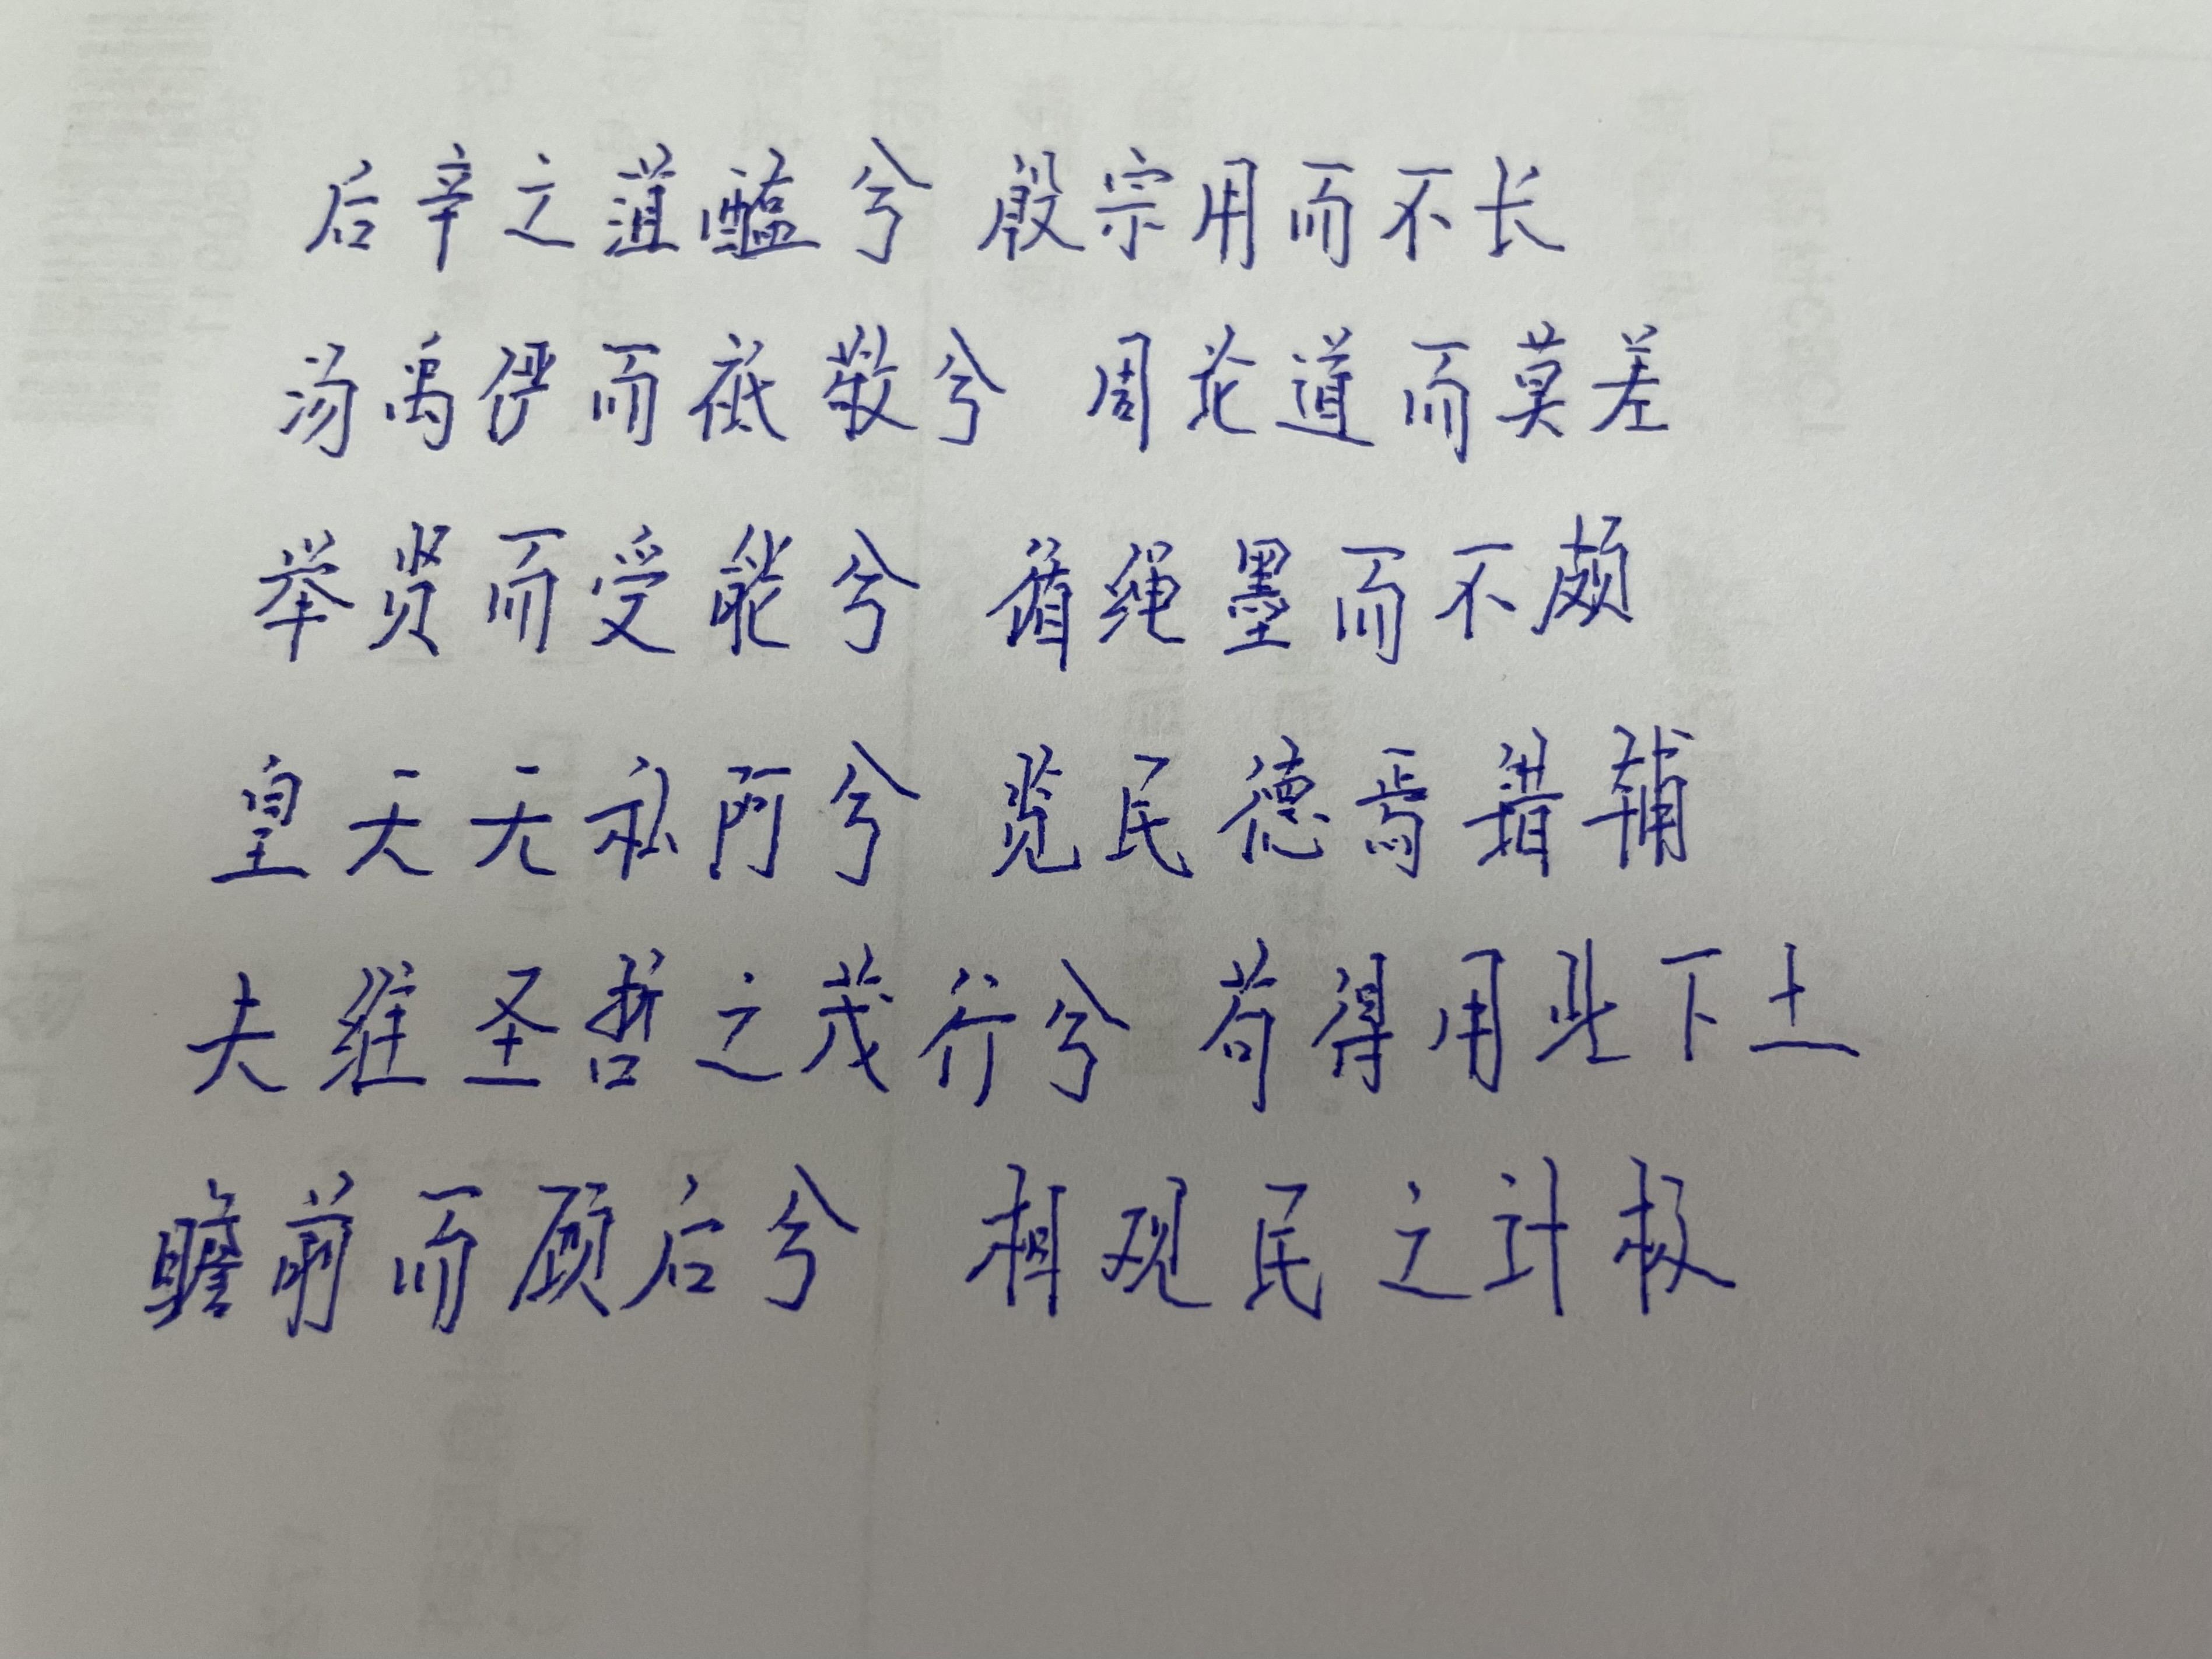 后辛之菹醢兮 殷宗用而不长
汤禹俨而祗敬兮 周道而莫差
举贤而受能兮 循绳墨而不颇
皇天无私阿兮 览民德焉错辅
夫维圣哲之茂行兮 苟得用此下土
瞻前而顾后兮 相观民之计极